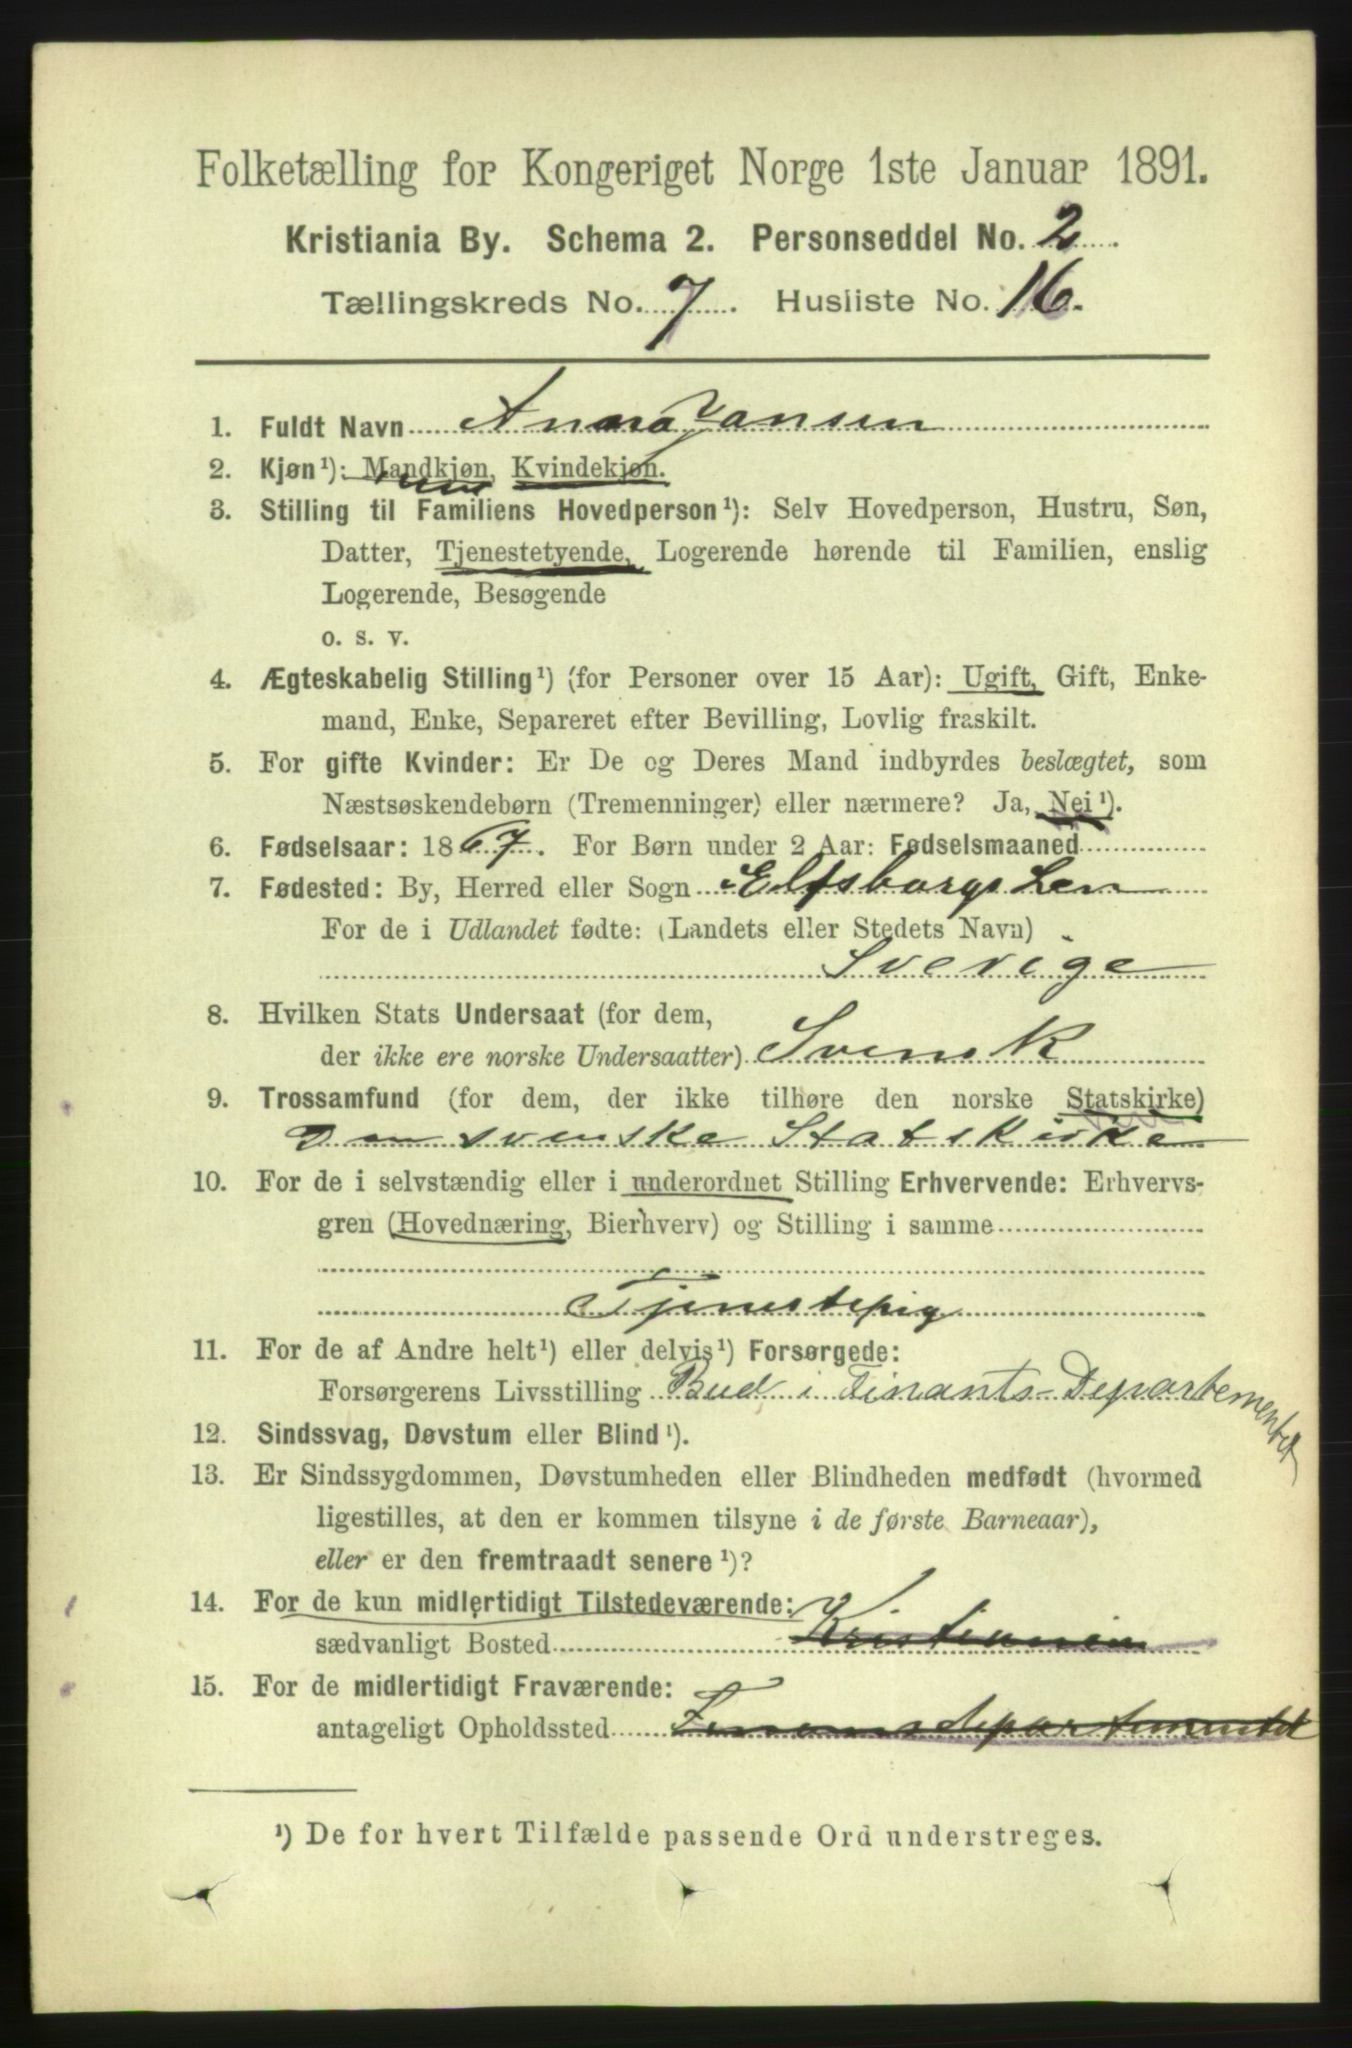 Folketælling for Kongeriget Norge 1ste Januar 1891.
Kristiania By. Schema 2. Personseddel No. 2.
Tællingskreds No. 7. Husliste No. 16.
1. Fuldt Navn Anna Jansen
2. Kjøn¹): Mandkjøn, Kvindekjøn.
3. Stilling til Familiens Hovedperson¹): Selv Hovedperson, Hustru, Søn,
Datter, Tjenestetyende, Logerende hørende til Familien, enslig
Logerende, Besøgende
o. s. v.
4. Ægteskabelig Stilling¹) (for Personer over 15 Aar): Ugift, Gift, Enke-
mand, Enke, Separeret efter Bevilling, Lovlig fraskilt.
5. For gifte Kvinder: Er De og Deres Mand indbyrdes beslægtet, som
Næstsøskendebørn (Tremenninger) eller nærmere? Ja, Nei¹).
6. Fødselsaar: 1867. For Børn under 2 Aar: Fødselsmaaned
7. Fødested: By, Herred eller Sogn Elfsborgs Len
For de i Udlandet fødte: (Landets eller Stedets Navn)
Sverige
8. Hvilken Stats Undersaat (for dem,
der ikke ere norske Undersaatter) Svensk
9. Trossamfund (for dem, der ikke tilhøre den norske Statskirke)
Den svenske Statskirke
10. For de i selvstændig eller i underordnet Stilling Erhvervende: Erhvervs-
gren (Hovednæring, Bierhverv) og Stilling i samme
Tjenestepig
11. For de af Andre helt¹) eller delvis¹) Forsørgede:
Forsørgerens Livsstilling Bud i Finants-Departementet
12. Sindssvag, Døvstum eller Blind¹).
13. Er Sindssygdommen, Døvstumheden eller Blindheden medfødt (hvormed
ligestilles, at den er kommen tilsyne i de første Barneaar),
eller er den fremtraadt senere¹)?
14. For de kun midlertidigt Tilstedeværende:
sædvanligt Bosted Kristiania
15. For de midlertidigt Fraværende:
antageligt Opholdssted Finansdepartementet
¹) De for hvert Tilfælde passende Ord understreges.